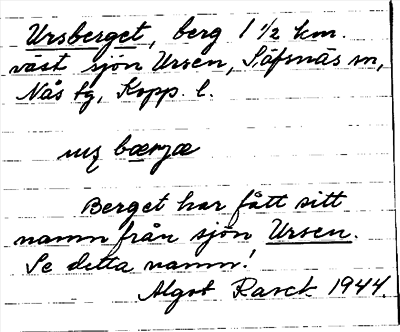 Ursberget, berg 1 1/2 km.
väst sjön Ursen, Säfsnäs sn,
Nås tg, Kopp. l.
bærjæ
Berget har fått sitt
namn från sjön Ursen.
Se detta namn!
Algot Rasck 1944.